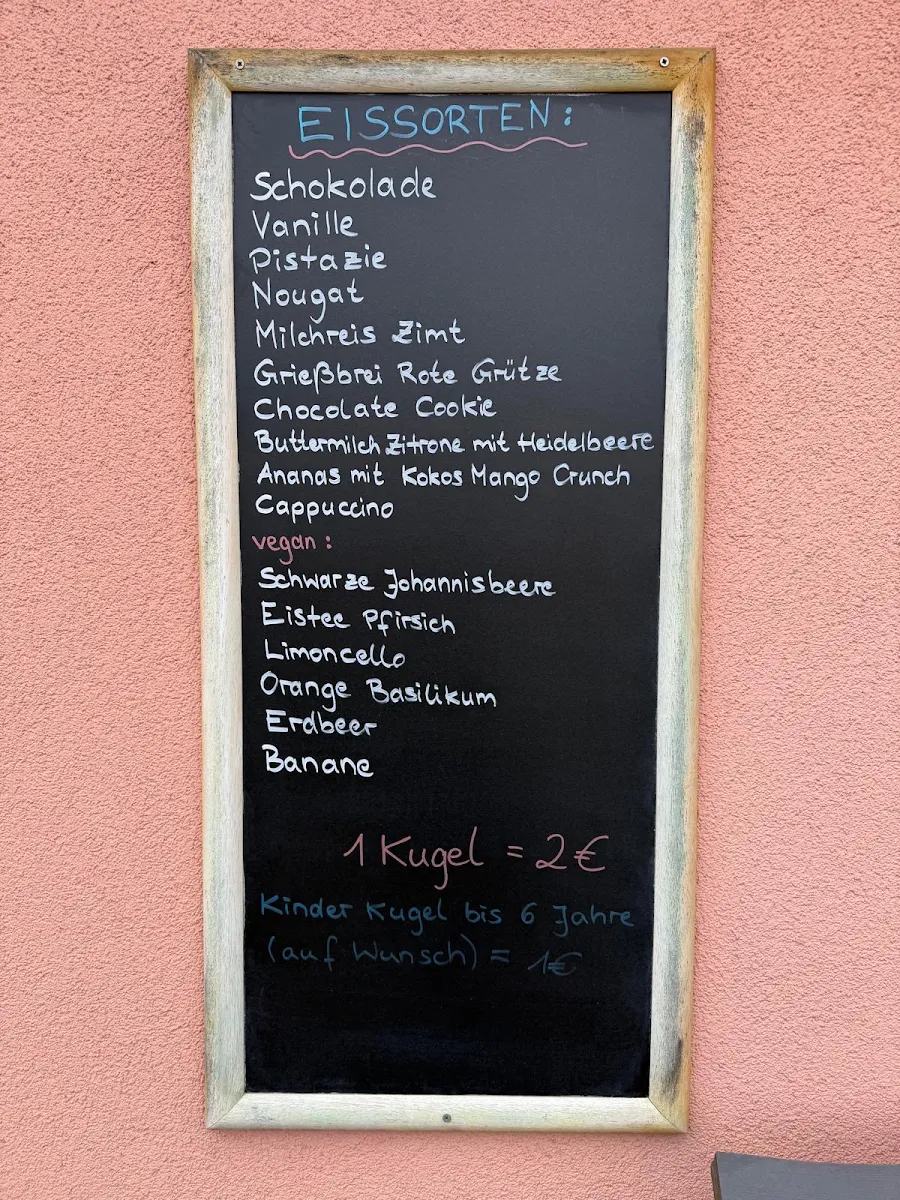 EISSORTEN:
Schokolade
Vanille
Pistazie
Nougat
Milchreis Zimt
Grießbrei Rote Grütze
Chocolate Cookie
Buttermilch Zitrone mit Heidelbeere
Ananas mit Kokos Mango Crunch
Cappuccino
vegan:
Schwarze Johannisbeere
Eistee Pfirsich
Limoncello
Orange Basilikum
Erdbeer
Banane
1 Kugel = 2€
Kinder Kugel bis 6 Jahre
(auf Wunsch) = 1€